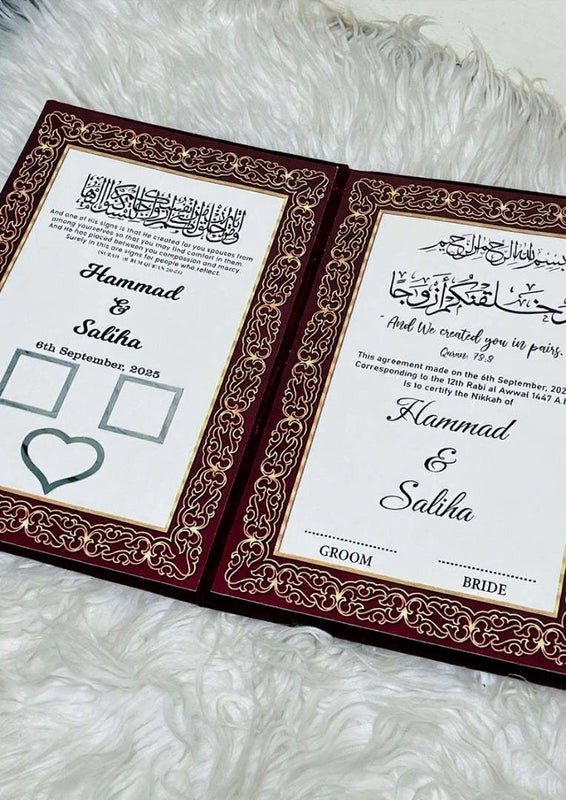 And one of His signs is that He created for you spouses from
among yourselves so that you may find comfort in them.
And He has placed between you compassion and mercy
Surely in this are signs for people who reflect.
Hammad
&
Saliha
6th September, 2025
بسم الله الرحمن الرحيم
خلقنكم أزوجا
"And We created you in pairs.
Quran: 78:8
This agreement made on the 6th September, 202
Corresponding to the 12th Rabi al Awwal 1447 A.
Is to certify the Nikkah of
Hammad
&
Saliha
GROOM
BRIDE